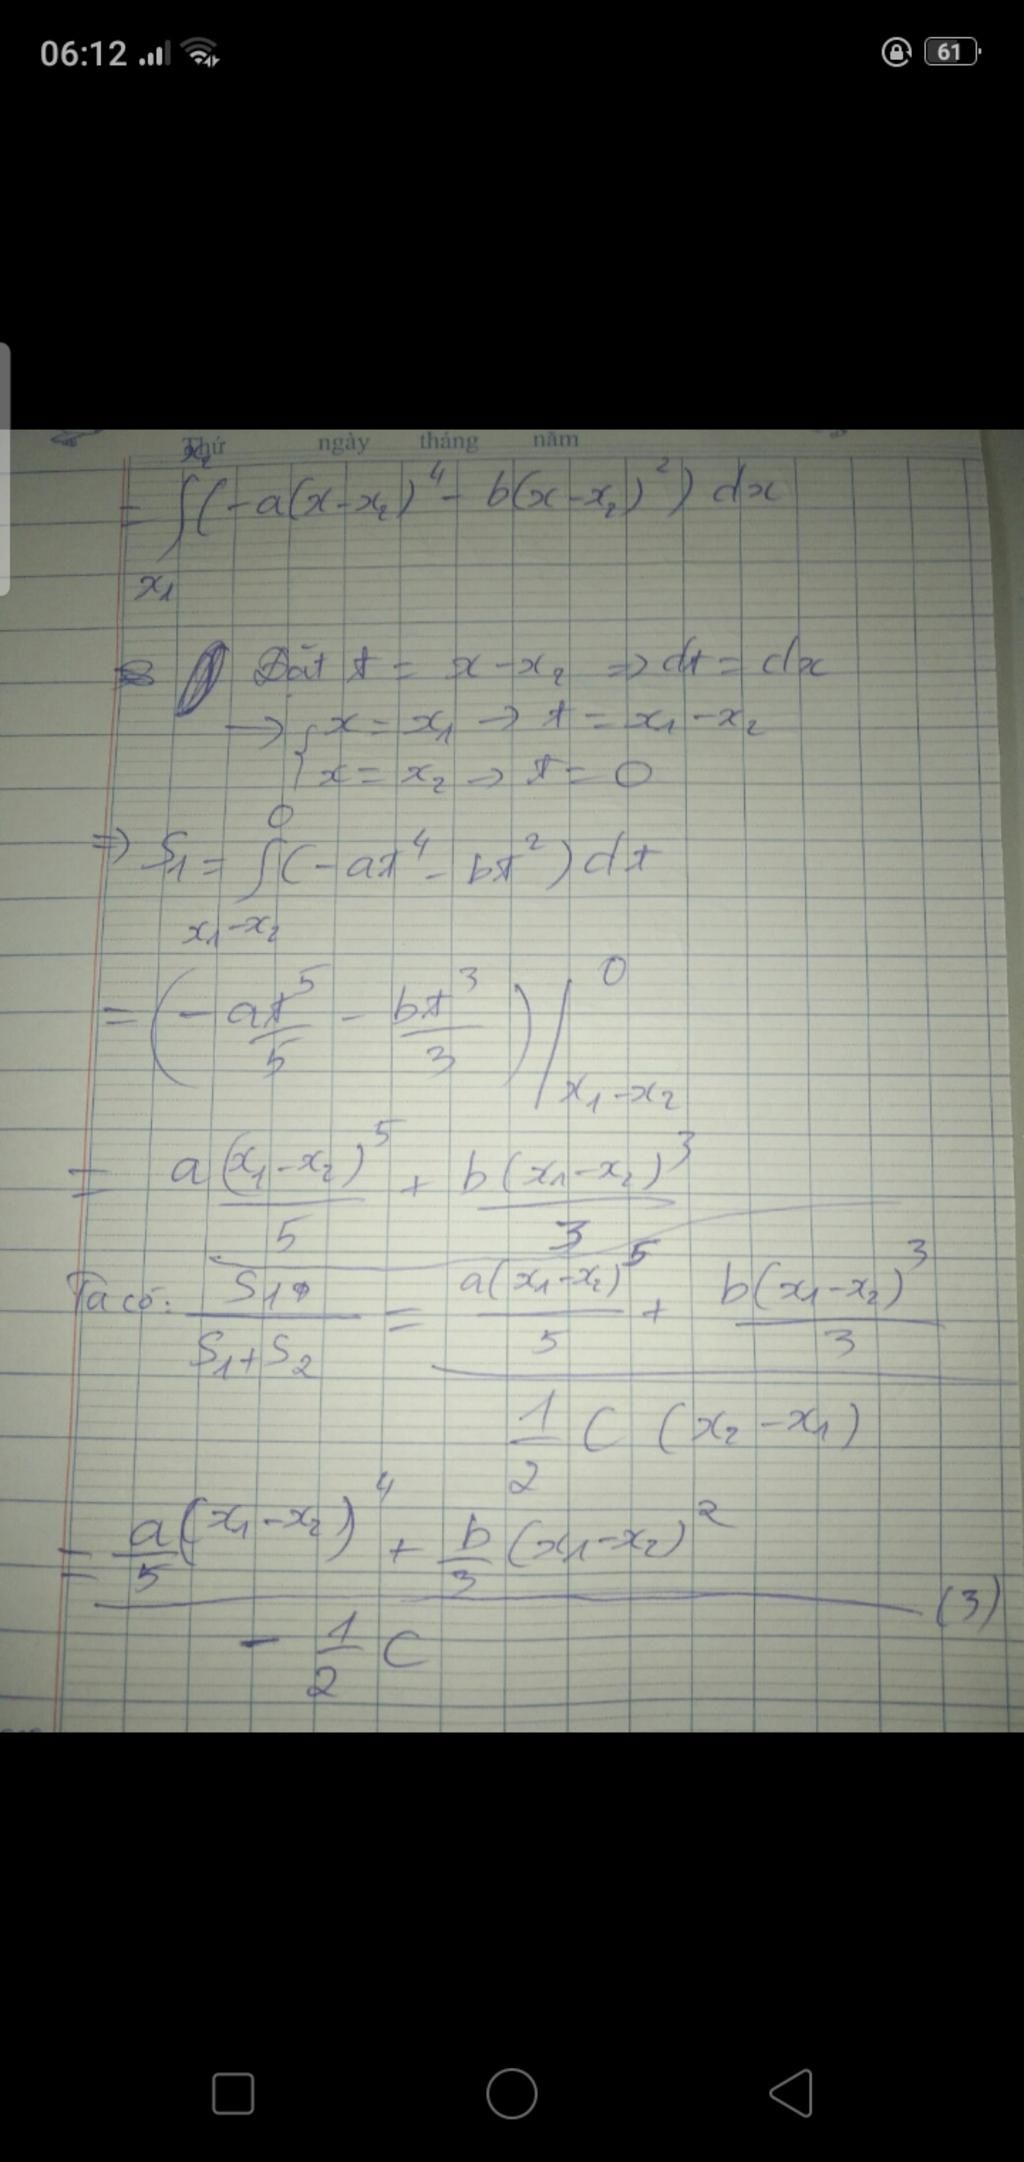 06:12
61
Thứ ngày tháng năm
= ∫ₓ₁ˣ² (-a(x-x₂)⁴ - b(x-x₂)²) dx
Đặt t = x-x₂ => dt = dx
→ { x = x₁ → t = x₁-x₂
x = x₂ → t = 0
=> S₁ = ∫_{x₁-x₂}^{0} (-at⁴ - bt²) dt
= (-at⁵/5 - bt³/3) |_{x₁-x₂}^{0}
= a(x₁-x₂)⁵/5 + b(x₁-x₂)³/3
Ta có: S₁/(S₁+S₂) = (a(x₁-x₂)⁵/5 + b(x₁-x₂)³/3) / (1/2 C (x₂-x₁))
= (a/5 (x₁-x₂)⁴ + b/3 (x₁-x₂)²) / (- 1/2 C) (3)